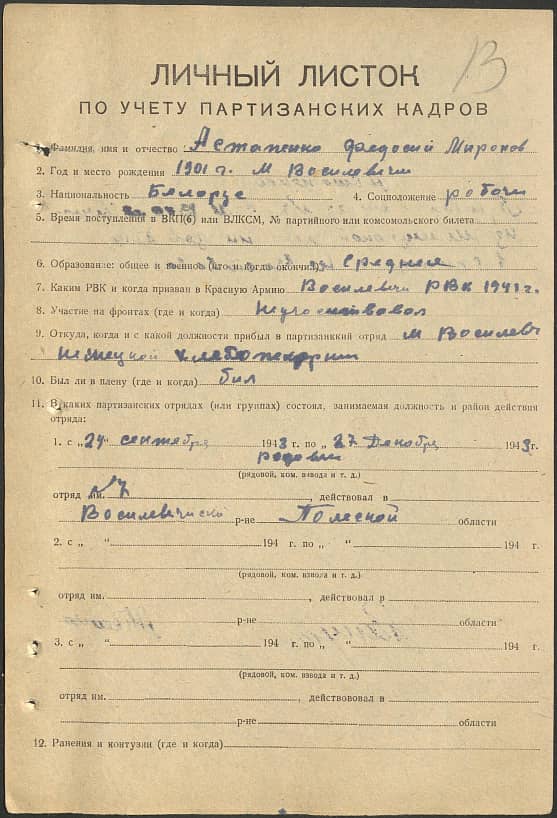 13
ЛИЧНЫЙ ЛИСТОК
ПО УЧЕТУ ПАРТИЗАНСКИХ КАДРОВ
1. Фамилия, имя и отчество Асташенко Федосий Миронов
2. Год и место рождения 1901 г. М Восилевичи
3. Национальность Беларус 4. Соцположение робочи
5. Время поступления в ВКП(б) или ВЛКСМ, № партийного или комсомольского билета
6. Образование: общее и военное (что и когда окончил) Среднее
7. Каким РВК и когда призван в Красную Армию Восилевичи РВК 1941 г.
8. Участие на фронтах (где и когда) Неучоствовол
9. Откуда, когда и с какой должности прибыл в партизанкий отряд М Восилевич
Немецкой
10. Был ли в плену (где и когда) бил
11. В каких партизанских отрядах (или группах) состоял, занимаемая должность и район действия
отряда:
1. с „24“ сентября 1943 г. по „27 Декабря 1943 г.
родовы
(рядовой, ком. взвода и т. д.)
отряд им. №7 , действовал в
Восилевичиски р-не Полеской области
2. с „ “ 194 г. по „ “ 194 г.
(рядовой, ком. взвода и т. д.)
отряд им. , действовал в
р-не области
3. с „ “ 194 г. по „ “ 194 г.
(рядовой, ком. взвода и т. д.)
отряд им. , действововал в
р-не области
12. Ранения и контузии (где и когда)